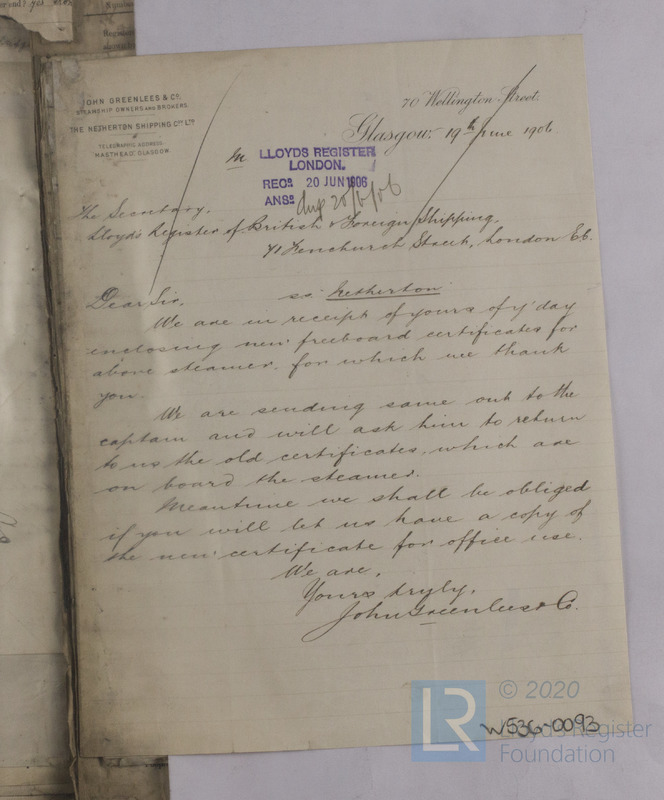 JOHN GREENLEES & Co.
STEAMSHIP OWNERS AND BROKERS
THE NETHERTON SHIPPING Coy. LTD
TELEGRAPHIC ADDRESS:
"MASTHEAD, GLASGOW
70 Wellington Street.
Glasgow, 19th June 1906
M
LLOYDS REGISTER
LONDON.
RECD. 20 JUN 1906
ANSD. 20/6/06
The Secretary,
Lloyd's Register of British & Foreign Shipping.
71 Fenchurch Street, London E.C.
Dear Sir, ss. "Netherton"
We are in receipt of yours of y'day
enclosing new freeboard certificates for
above steamer, for which we thank
you.
We are sending same out to the
captain and will ask him to return
to us the old certificates, which are
on board the steamer.
Meantime we shall be obliged
if you will let us have a copy of
the new certificate for office use.
We are,
Yours truly,
John Greenlees & Co.
LR © 2020
Lloyd's Register
Foundation
W536-0093